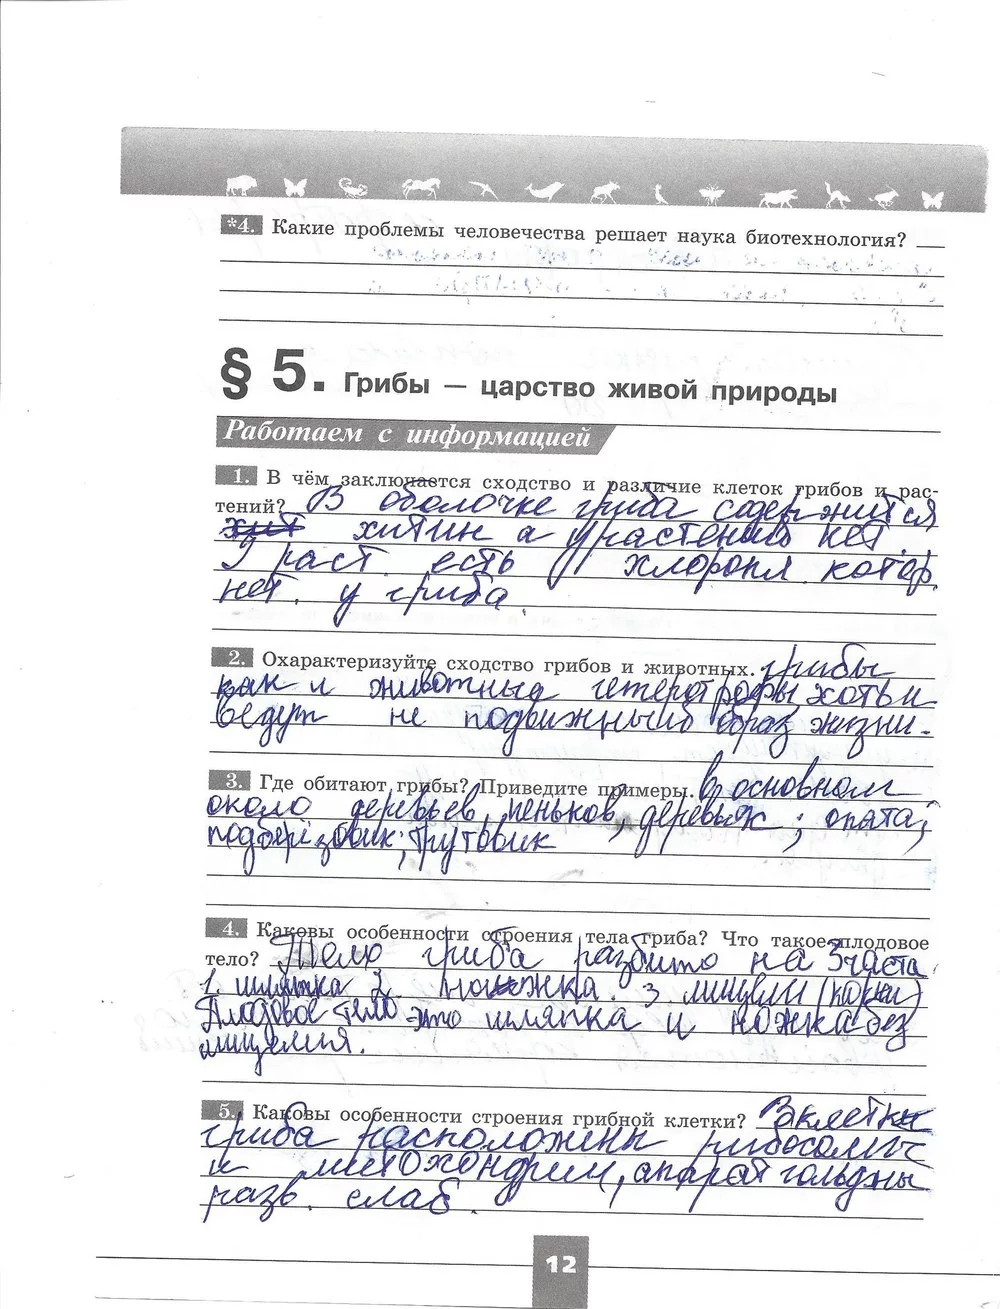 *4. Какие проблемы человечества решает наука биотехнология?
§ 5. Грибы — царство живой природы
Работаем с информацией
1. В чём заключается сходство и различие клеток грибов и рас-
тений? В оболочке гриба содержится
хит хитин а у растений нет.
У раст. есть хлоропл. котор.
нет. у гриба.
2. Охарактеризуйте сходство грибов и животных. грибы
как и животные гетеротрофы хоть и
ведут не подвижный образ жизни.
3. Где обитают грибы? Приведите примеры. в основном
около деревьев, пеньков, деревьях; опята;
подберёзовик; трутовик
4. Каковы особенности строения тела гриба? Что такое плодовое
тело? Тело гриба разбито на 3 части
1. шляпка 2. ножка. 3. мицелий (корни)
Плодовое тело-это шляпка и ножка без
мицелия.
5. Каковы особенности строения грибной клетки? В клетки
гриба расположены рибосомы
и митохондрии, апарат гольджы
разв. слаб.
12